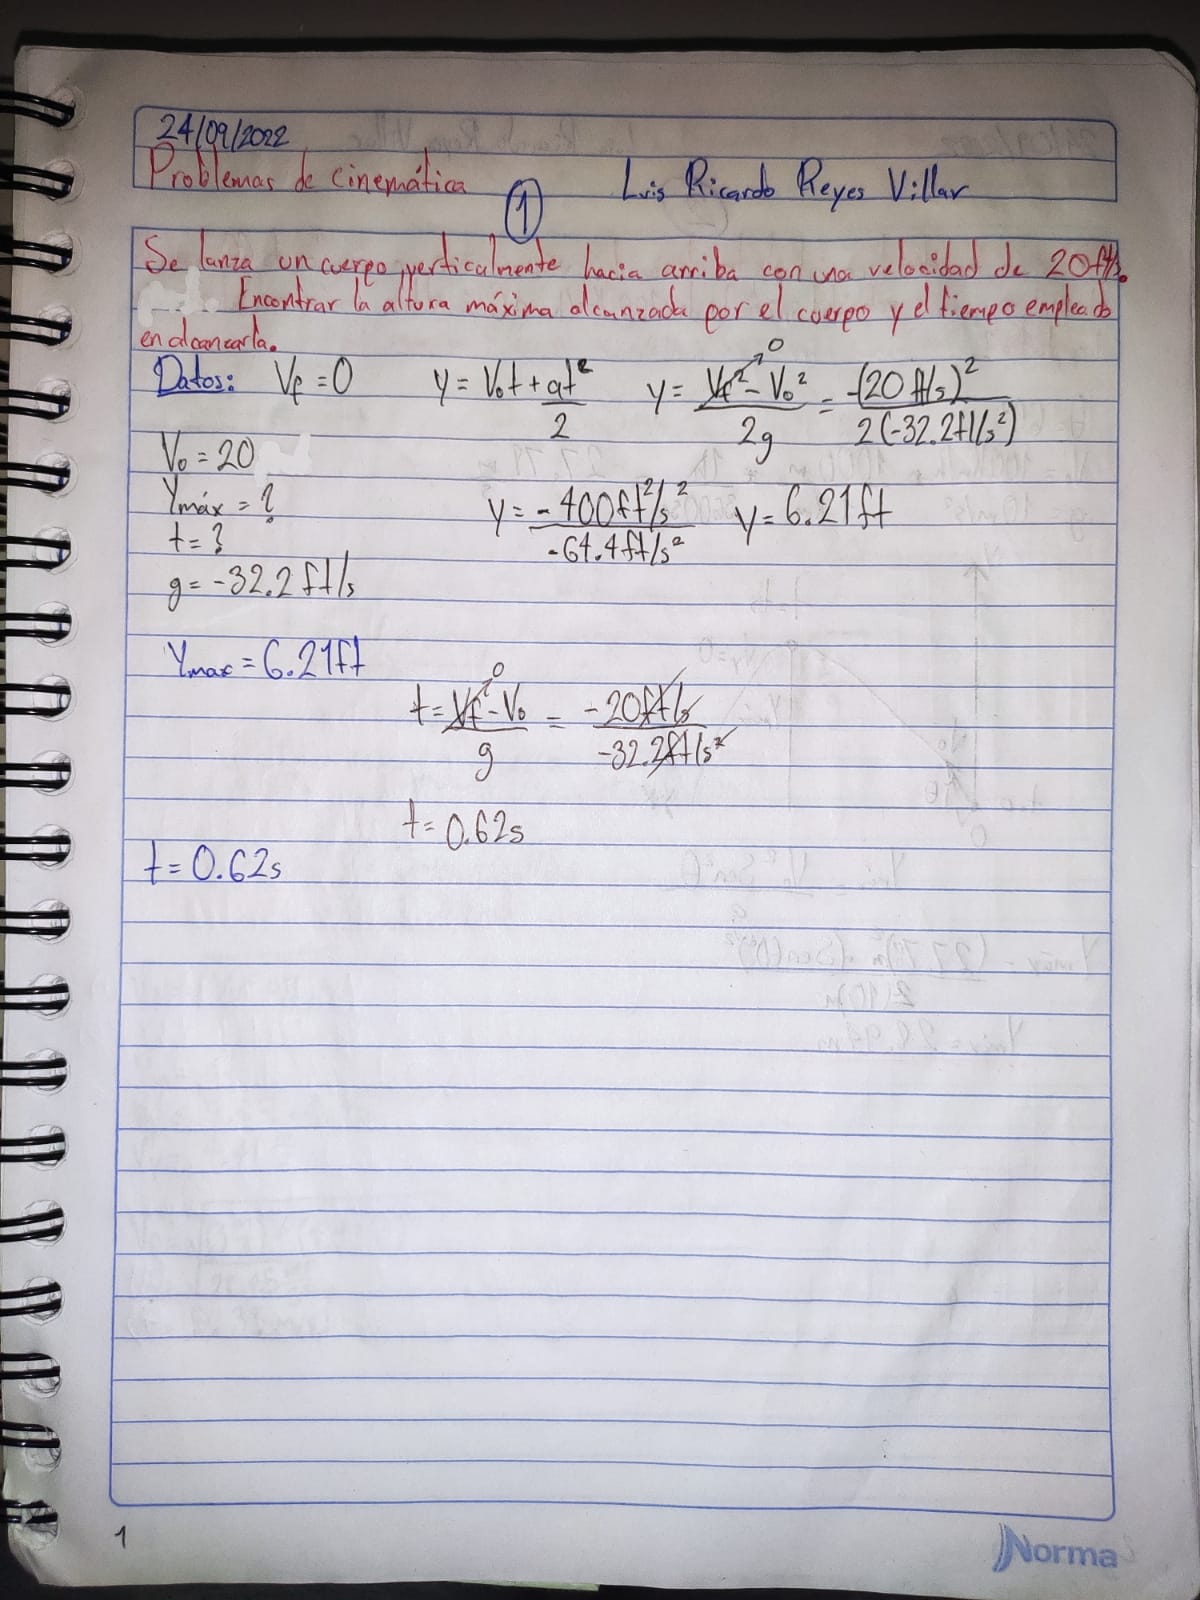 24/09/2022
Problemas de cinemática
1
Luis Ricardo Reyes Villar
Se lanza un cuerpo verticalmente hacia arriba con una velocidad de 20ft/s.
Encontrar la altura máxima alcanzada por el cuerpo y el tiempo empleado
en alcanzarla.
Datos: Vf = 0 y = Vot + at²/2 y = Vf² - Vo²/2g = -(20 ft/s)²/2(-32.2ft/s²)
0
Vo = 20
Ymáx = ?
t = ?
g = -32.2 ft/s
y = -400ft²/s²/-64.4ft/s² y = 6.21ft
Ymax = 6.21ft
t = Vf - Vo/g = -20ft/s/-32.2ft/s²
0
t = 0.62s
t = 0.62s
1
Norma